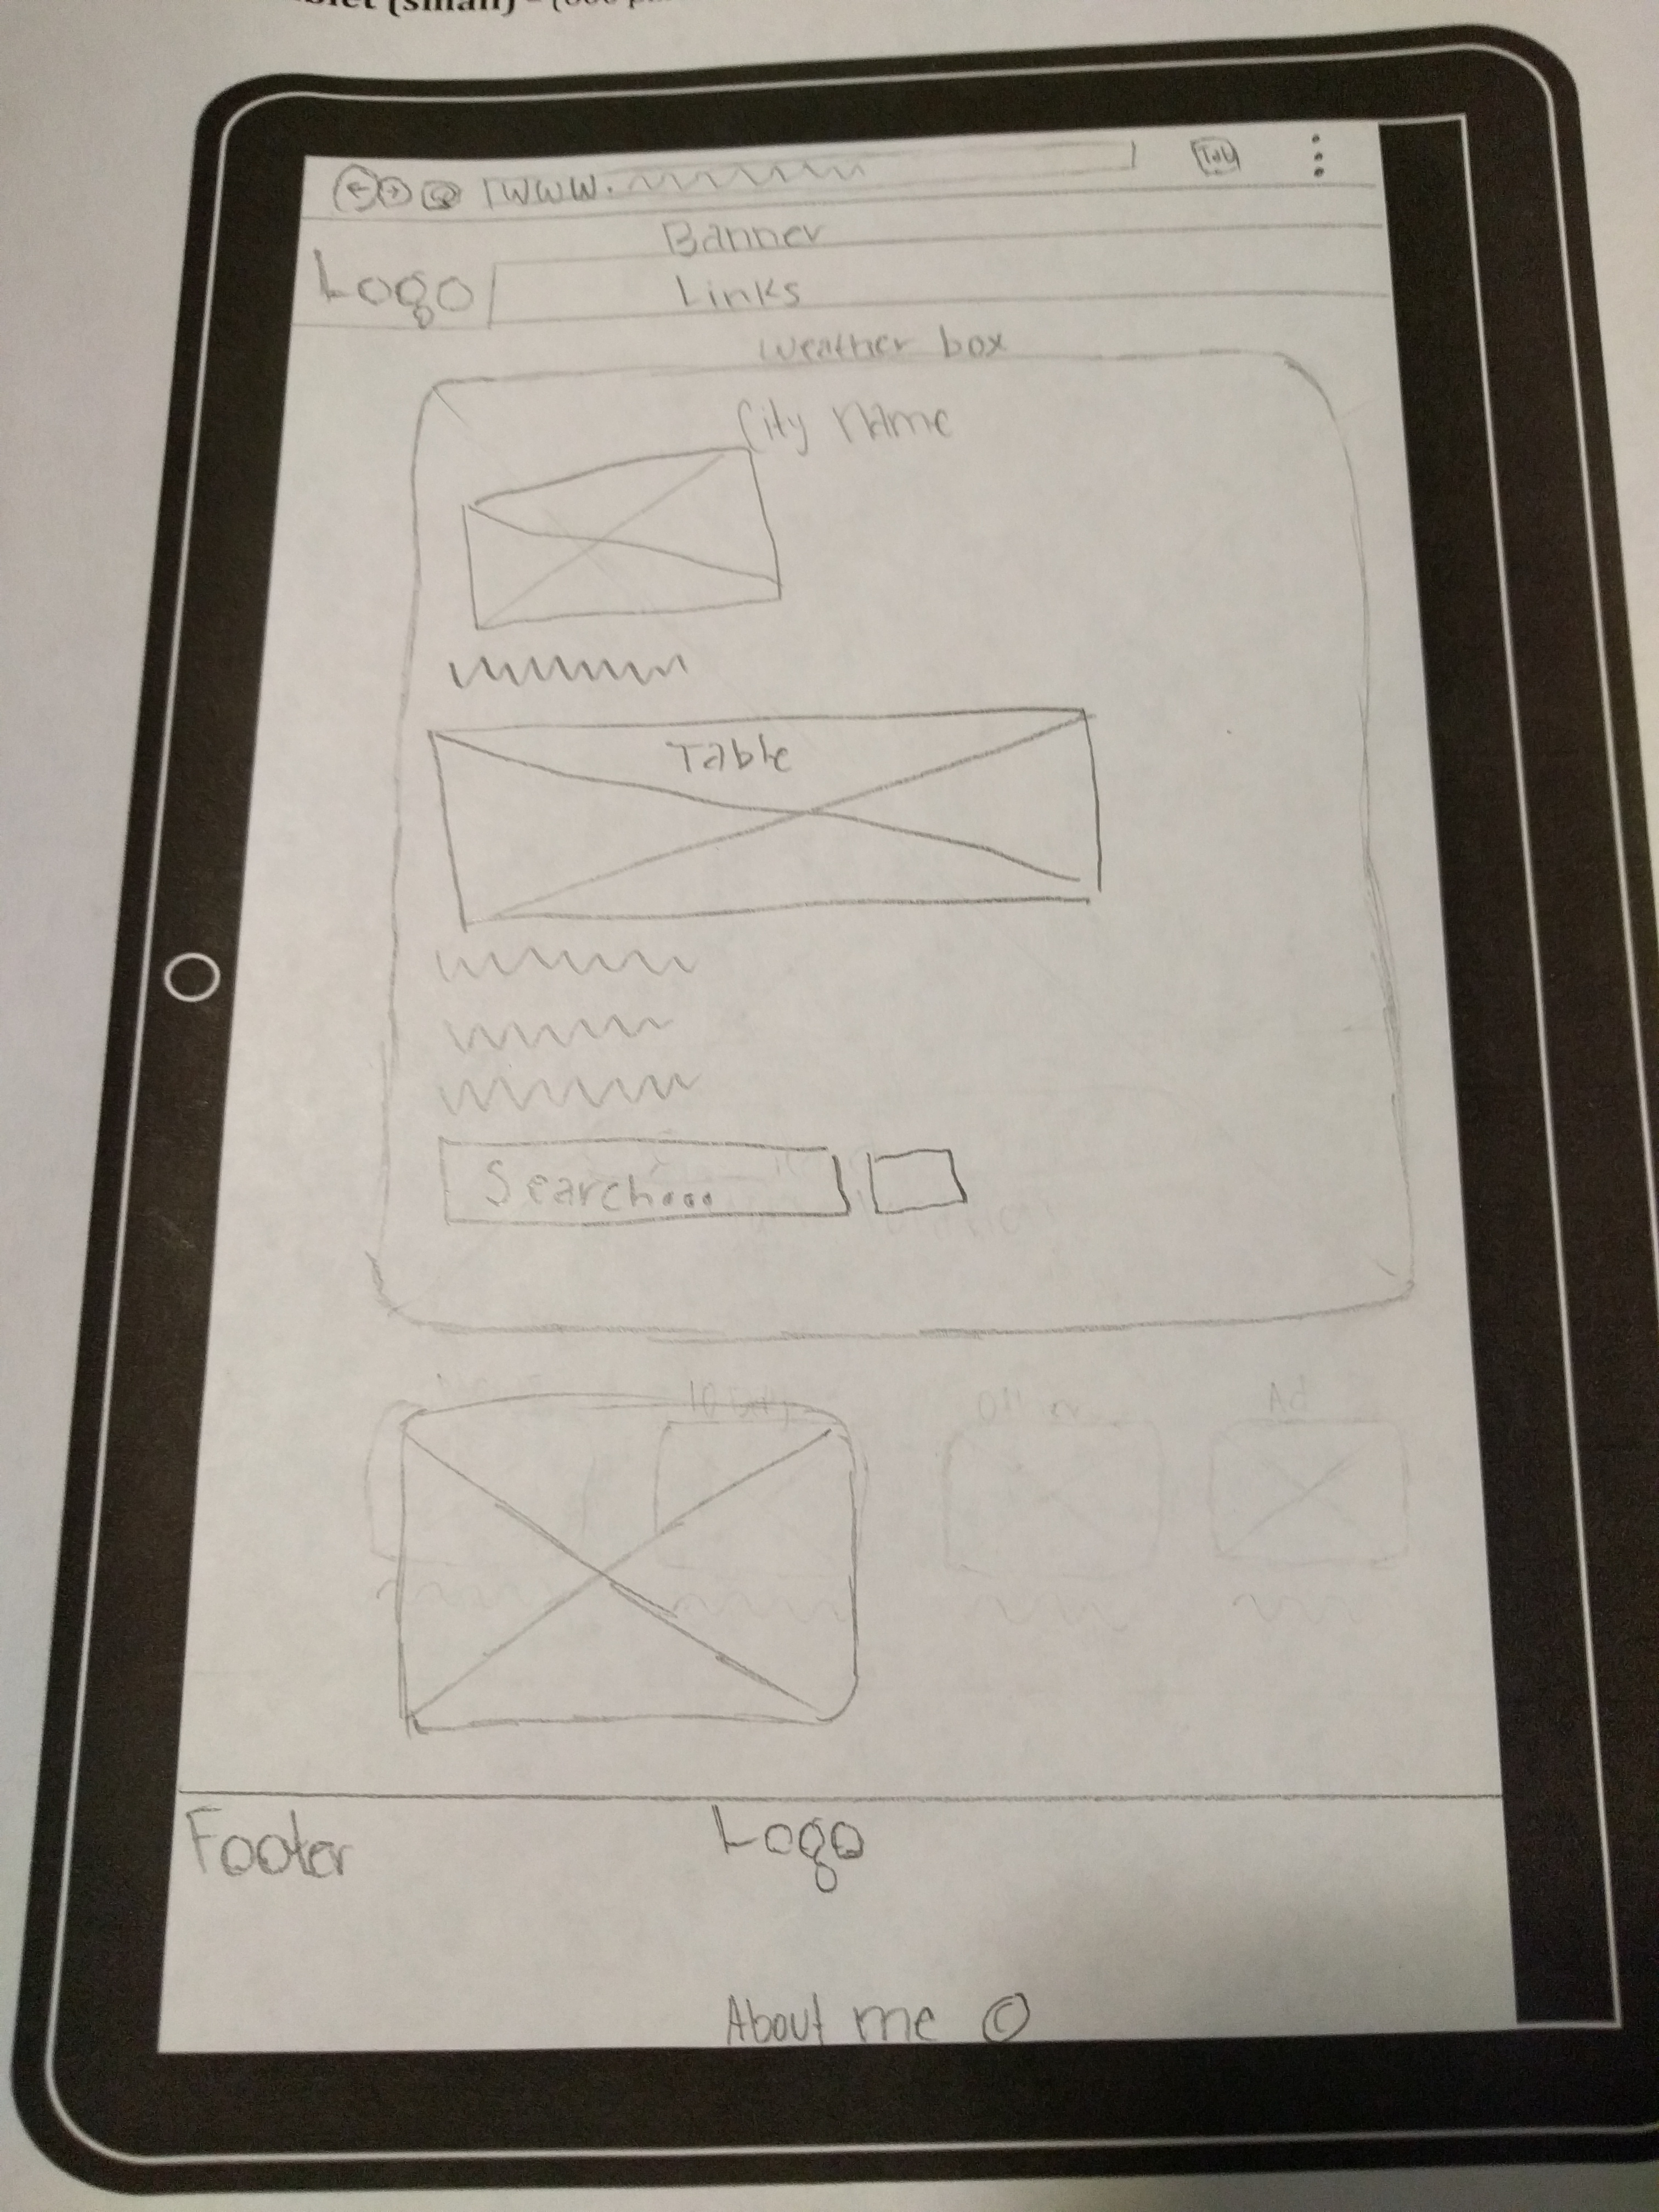 www.
Tab
Banner
Logo
Links
Weather box
City name
Table
Search...
Ad
Footer
Logo
About me ©